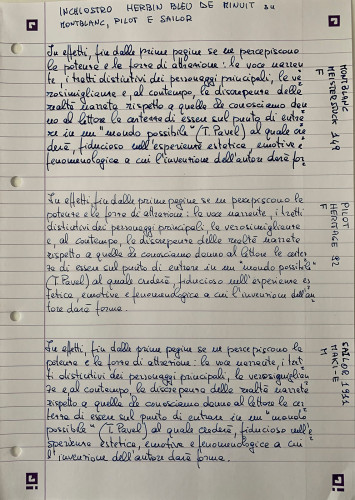 INCHIOSTRO HERBIN BLEU DE MINUIT su
MONTBLANC, PILOT E SAILOR
In effetti, fin dalle prime pagine se ne percepiscono
la potenza e la forza di attrazione: la voce narran-
te, i tratti distintivi dei personaggi principali, la ve-
rosimiglianza e, al contempo, la discrepanza dalla
realtà narrata rispetto a quella da conosciamo dan-
no al lettore la certezza di essere sul punto di entra-
re in un "mondo possibile" (T. Pavel) al quale cre-
derà, fiducioso nell'esperienza estetica, emotiva e
fenomenologica a cui l'invenzione dell'autore darà for-
MONTBLANC
MEISTERSTÜCK 149
F
In effetti, fin dalle prime pagine se ne percepiscono la
potenza e la forza di attrazione: la voce narrante, i tratti
distintivi dei personaggi principali, la verosimiglianza
e, al contempo, la discrepanza dalla realtà narrata
rispetto a quella da conosciamo danno al lettore la certez-
za di essere sul punto di entrare in un "mondo possibile"
(T. Pavel) al quale crederà, fiducioso nell'esperienza es-
tetica, emotiva e fenomenologica a cui l'invenzione dell'au-
tore darà forma.
PILOT
HERITAGE 92
F
In effetti, fin dalle prime pagine se ne percepiscono la
potenza e la forza di attrazione: la voce narrante, i trat-
ti distintivi dei personaggi principali, la verosimiglian-
za e, al contempo, la discrepanza dalla realtà narrata
rispetto a quella da conosciamo danno al lettore la cer-
tezza di essere sul punto di entrare in un "mondo
possibile" (T. Pavel) al quale crederà, fiducioso nell'e-
sperienza estetica, emotiva e fenomenologica a cui
l'invenzione dell'autore darà forma.
SAILOR 1911
MAKI-E
M